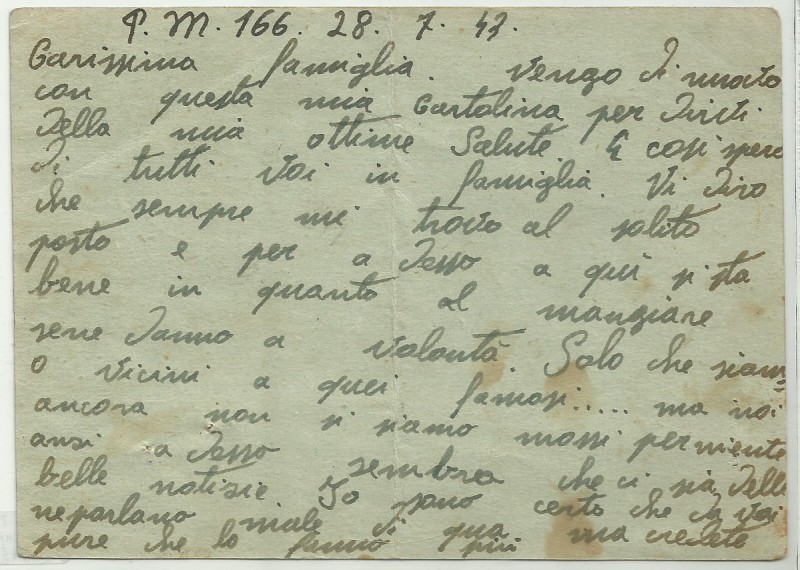 P. M. 166. 28. 7. 43.
Carissima famiglia. Vengo di nuovo
con questa mia Cartolina per dirvi
della mia ottime Salute. E cosi spero
di tutti Voi in famiglia. Vi Diro
che sempre mi trovo al solito
posto e per a desso a qui si sta
bene in quanto al mangiare
sene danno a volontà. Solo che siam=
o vicini a quei famosi..... ma noi
ancora non si siamo mossi per niente
ansi a desso sembra che ci sia delle
belle notisie Io sono certo che da voi
neparlano male di qua ma credete
pure che lo fanno più